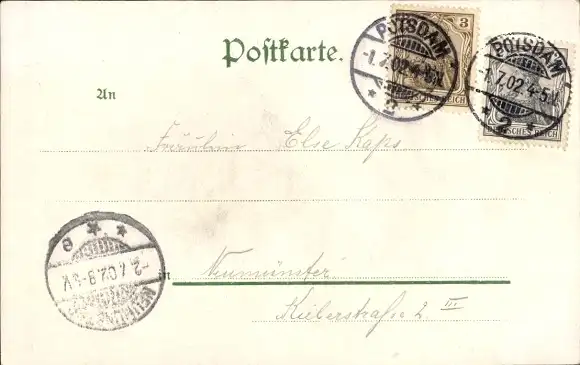 Postkarte.
3
POTSDAM
-1.7.02.4-5V.
* 2 *
DEUTSCHES REICH
POTSDAM
-1.7.02.4-5.V.
* 2 *
DEUTSCHES REICH
An
Fräulein Else Kaps
-2.7.02.8-9.V.
in Neumünster
Kielerstraße 2 III